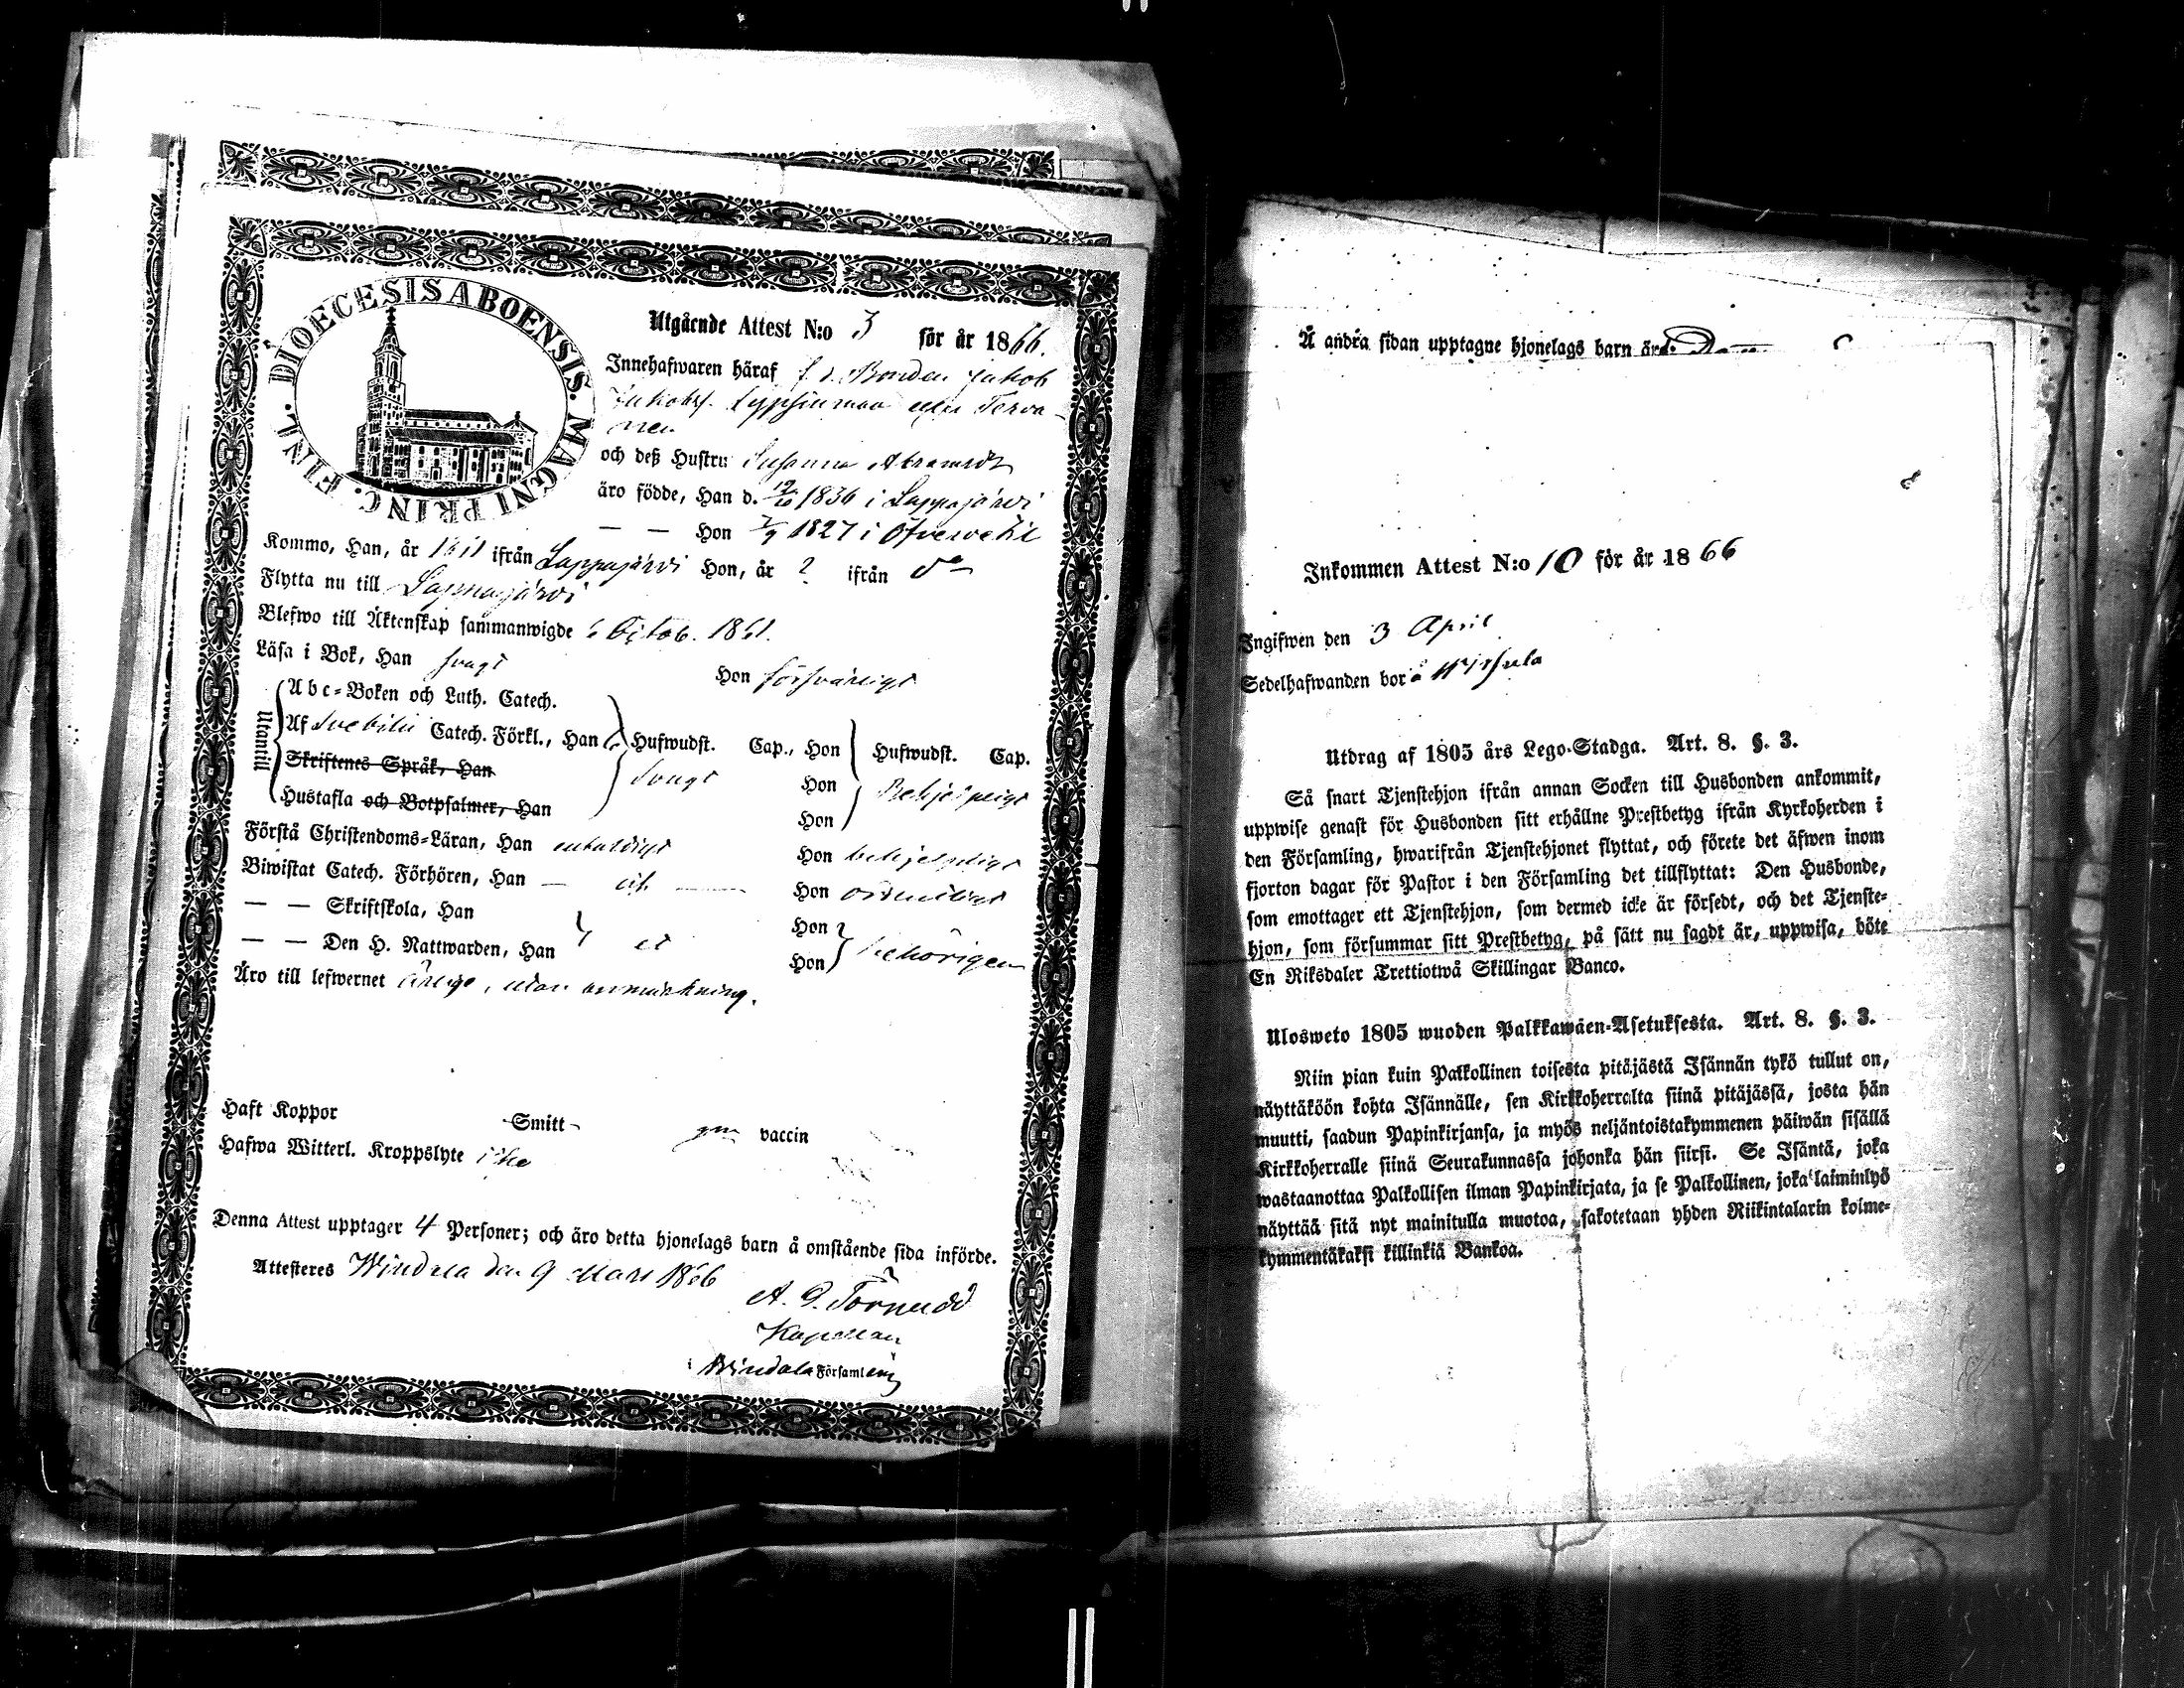 DIOECESIS ABOENSIS. MAGNI PRINC. FINL.
Utgående Attest N:o 3 för år 1866.
Innehafwaren häraf f. d. Bonden Jakob
Jakobs. Lypsinmaa eller Terva-
nen
och deß Hustru Susanna Abramsdr
äro födde, Han d. 1836 i Lappajärvi
— — Hon 1827 i Öfvervetil
Kommo, Han, år 1861 ifrån Lappajärvi Hon, år ? ifrån do
Flytta nu till Lappajärvi
Blefwo till Äktenskap sammanwigde 6 Octob. 1861.
Läsa i Bok, Han svagt Hon försvarligt
Utantill
Abc-Boken och Luth. Catech.
Af Svebilii Catech. Förkl., Han Hufwudst. Cap., Hon Hufwudst. Cap.
Skriftenes Språk, Han svagt Hon Behjelpligt
Hustafla och Botpsalmer, Han Hon
Förstå Christendoms-Läran, Han enfaldigt Hon behjelpligt
Biwistat Catech. Förhören, Han — — Hon ordentligt
— — Skriftskola, Han Hon
— — Den H. Nattwarden, Han Hon behörigen
Äro till lefwernet ärliga, utan anmärkning.
Haft Koppor Smitt- gm vaccin
Hafwa Witterl. Kroppslyte icke
Denna Attest upptager 4 Personer; och äro detta hjonelags barn å omstående sida införde.
Attesteres Windala den 9 Mars 1866
A. G. Törnudd
Kapellan
i Windala Församling
Å andra sidan upptagne hjonelags barn äro:
Inkommen Attest N:o 10 för år 1866
Ingifwen den 3 April
Sedelhafwanden bor å
Utdrag af 1805 års Lego-Stadga. Art. 8. §. 3.
Så snart Tjenstehjon ifrån annan Socken till Husbonden ankommit,
uppwise genast för Husbonden sitt erhållne Prestbetyg ifrån Kyrkoherden i
den Församling, hwarifrån Tjenstehjonet flyttat, och förete det äfwen inom
fjorton dagar för Pastor i den Församling det tillflyttat: Den Husbonde,
som emottager ett Tjenstehjon, som dermed icke är försedt, och det Tjenste-
hjon, som försummar sitt Prestbetyg, på sätt nu sagdt är, uppwisa, böte
En Riksdaler Trettiotwå Skillingar Banco.
Ulosweto 1805 wuoden Palkkawäen-Asetuksesta. Art. 8. §. 3.
Niin pian kuin Palkollinen toisesta pitäjästä Isännän tykö tullut on,
näyttäköön kohta Isännälle, sen Kirkkoherralta siinä pitäjässä, josta hän
muutti, saadun Papinkirjansa, ja myös neljäntoistakymmenen päiwän sisällä
Kirkkoherralle siinä Seurakunnassa johonka hän siirsi. Se Isäntä, joka
wastaanottaa Palkollisen ilman Papinkirjata, ja se Palkollinen, joka laiminlyö
näyttää sitä nyt mainitulla muotoa, sakotetaan yhden Riikintalarin kolme-
kymmentäkaksi killinkiä Bankoa.